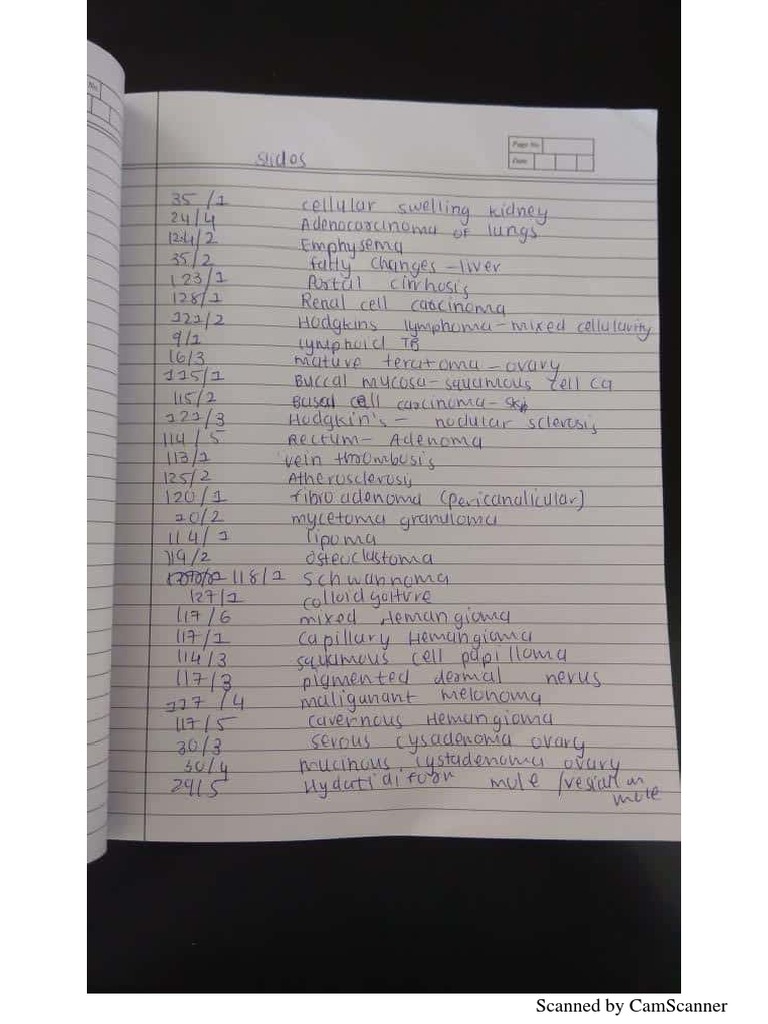 No
Page No
Date
slides
35/1 cellular swelling kidney
24/4 Adenocarcinoma of lungs
124/2 Emphysema
35/2 fatty changes - liver
123/1 Portal cirrhosis
128/1 Renal cell carcinoma
121/2 Hodgkins lymphoma - mixed cellularity
9/1 lymphoid TB
16/3 mature teratoma - ovary
115/1 Buccal mucosa - squamous cell ca
115/2 Basal cell carcinoma - skin
121/3 Hodgkin's - nodular sclerosis
114/5 Rectum - Adenoma
113/1 vein thrombosis
125/2 Atherosclerosis
120/1 fibroadenoma (pericanalicular)
20/2 mycetoma granuloma
114/1 lipoma
119/2 osteoclastoma
118/1 schwannoma
127/1 colloid goiture
117/6 mixed Hemangioma
117/1 capillary Hemangioma
114/3 squamous cell papilloma
117/3 pigmented dermal nevus
117/4 maligunant melonoma
117/5 cavernous Hemangioma
30/3 serous cysadenoma ovary
30/4 mucinous cystadenoma ovary
29/5 Hydatidiform mole /
mole
Scanned by CamScanner